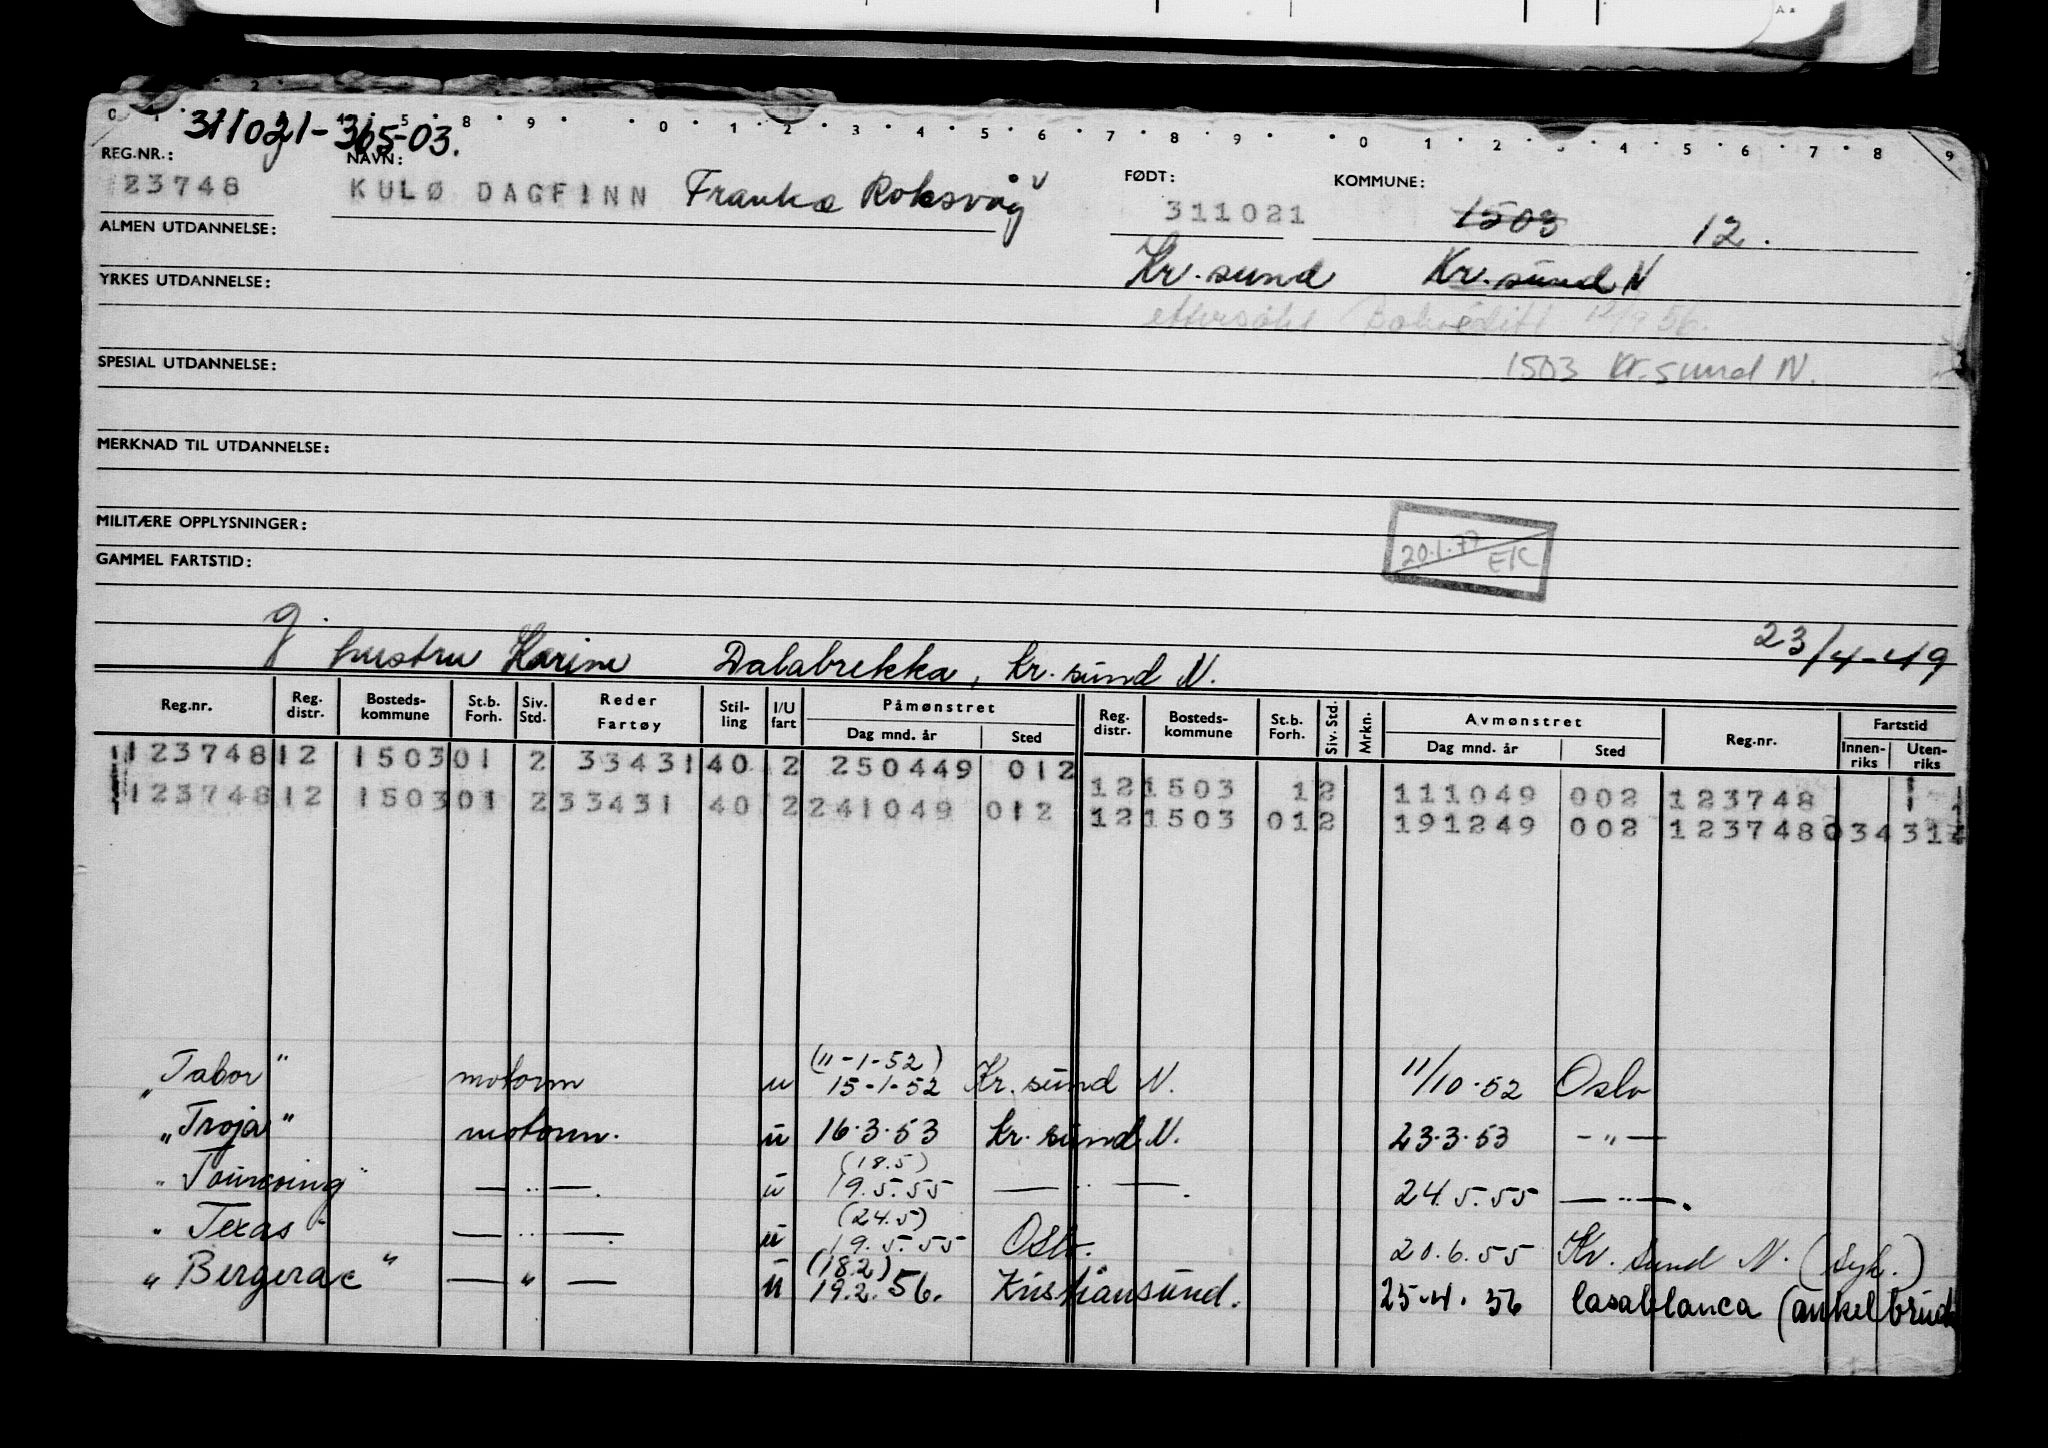 311021-36503.
REG.NR.: NAVN: FØDT: KOMMUNE:
23748 KULØ DAGFINN Franka Roksvåg 311021 1503 12.
ALMEN UTDANNELSE:
Kr. sund Kr. sund N
YRKES UTDANNELSE:
ettersøkt 12/9 56.
SPESIAL UTDANNELSE: 1503 Kr. sund N.
MERKNAD TIL UTDANNELSE:
MILITÆRE OPPLYSNINGER:
20.1.77 EK
GAMMEL FARTSTID:
g. hustru Karine Dalabrekka, Kr. sund N. 23/4-49
Reg.nr. Reg. distr. Bosteds-kommune St.b. Forh. Siv. Std. Reder Fartøy Stil-ling I/U fart Påmønstret Dag mnd. år Sted Reg. distr. Bosteds-kommune St.b. Forh. Siv. Std. Mrkn. Avmønstret Dag mnd. år Sted Reg.nr. Fartstid Innen-riks Uten-riks
123748 12 1503 01 2 33431 40 2 250449 012
12 1503 1 2 111049 002 123748
123748 12 1503 01 2 33431 40 2 241049 012
12 1503 01 2 191249 002 123748 034 314
"Tabor" motorm u (11-1-52) 15-1-52 Kr. sund N. 11/10-52 Oslo
"Troja" motorm. u 16.3.53 Kr. sund N. 23.3.53 -"-
"Touraine" -"-. u (18.5) 19.5.55 -"-. 24.5.55 -"-.
"Texas" -"-. u (24.5) 19.5.55 Oslo. 20.6.55 Kr. sund N. (syk.)
"Bergerac" -"- u (18.2) 19.2.56. Kristiansund. 25.4.56 Casablanca (ankelbrudd